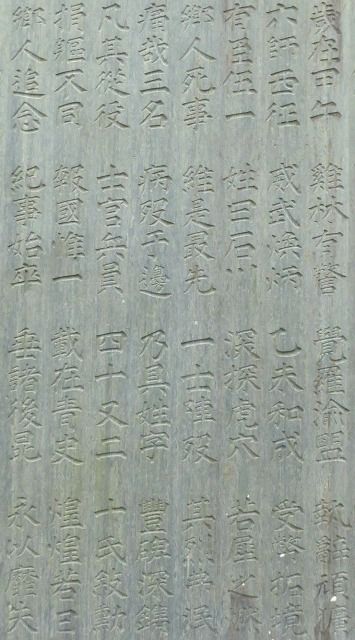 歲在甲午 雞林有警 覺羅渝盟 孰辭頑
六師西征 威武渙炳 乙未和成 受幣拓境
有臣伍一 姓曰石川 深探虎穴 若
鄉人死事 維是最先 一士陣歿 其烈無泯
哉三名 病歿于邊 乃具姓字 豐碑深鐫
凡其從役 士官兵員 四十又二 十氏敍勳
捐軀不同 報國惟一 載在青史 煌煌若日
鄉人追念 紀事始卒 垂諸後昆 永以靡失